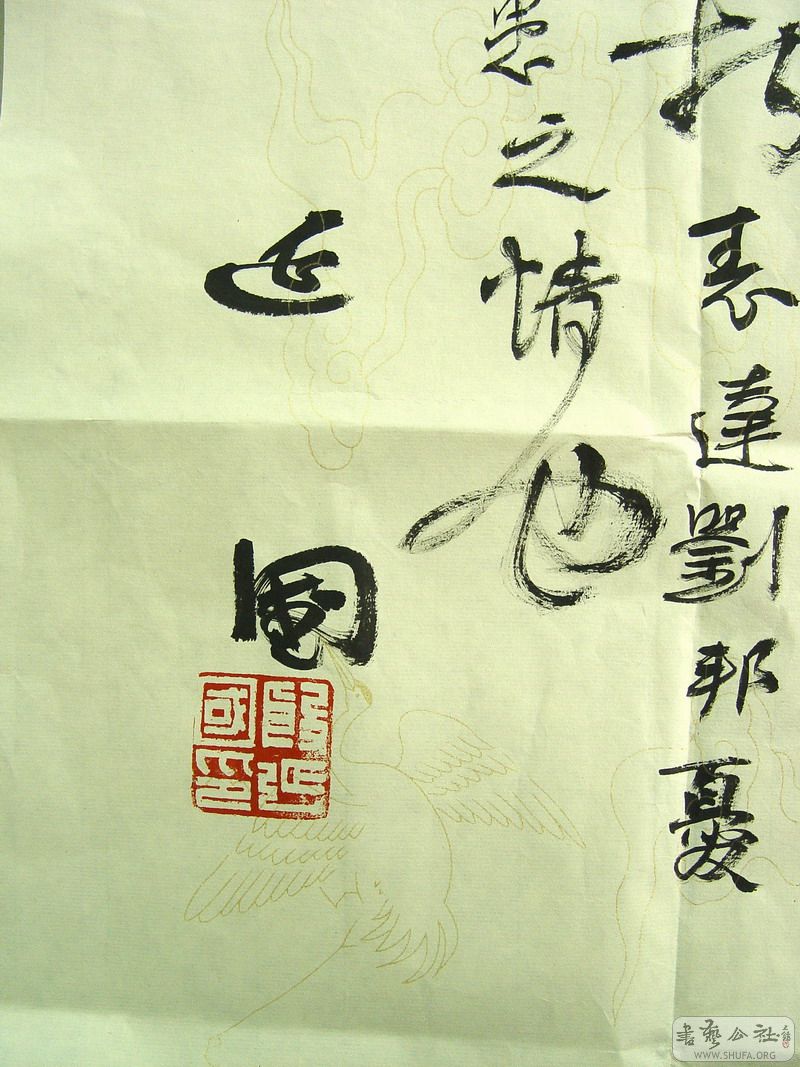 表達劉邦憂
患之情也
延國
延國印
書藝公社
WWW.SHUFA.ORG